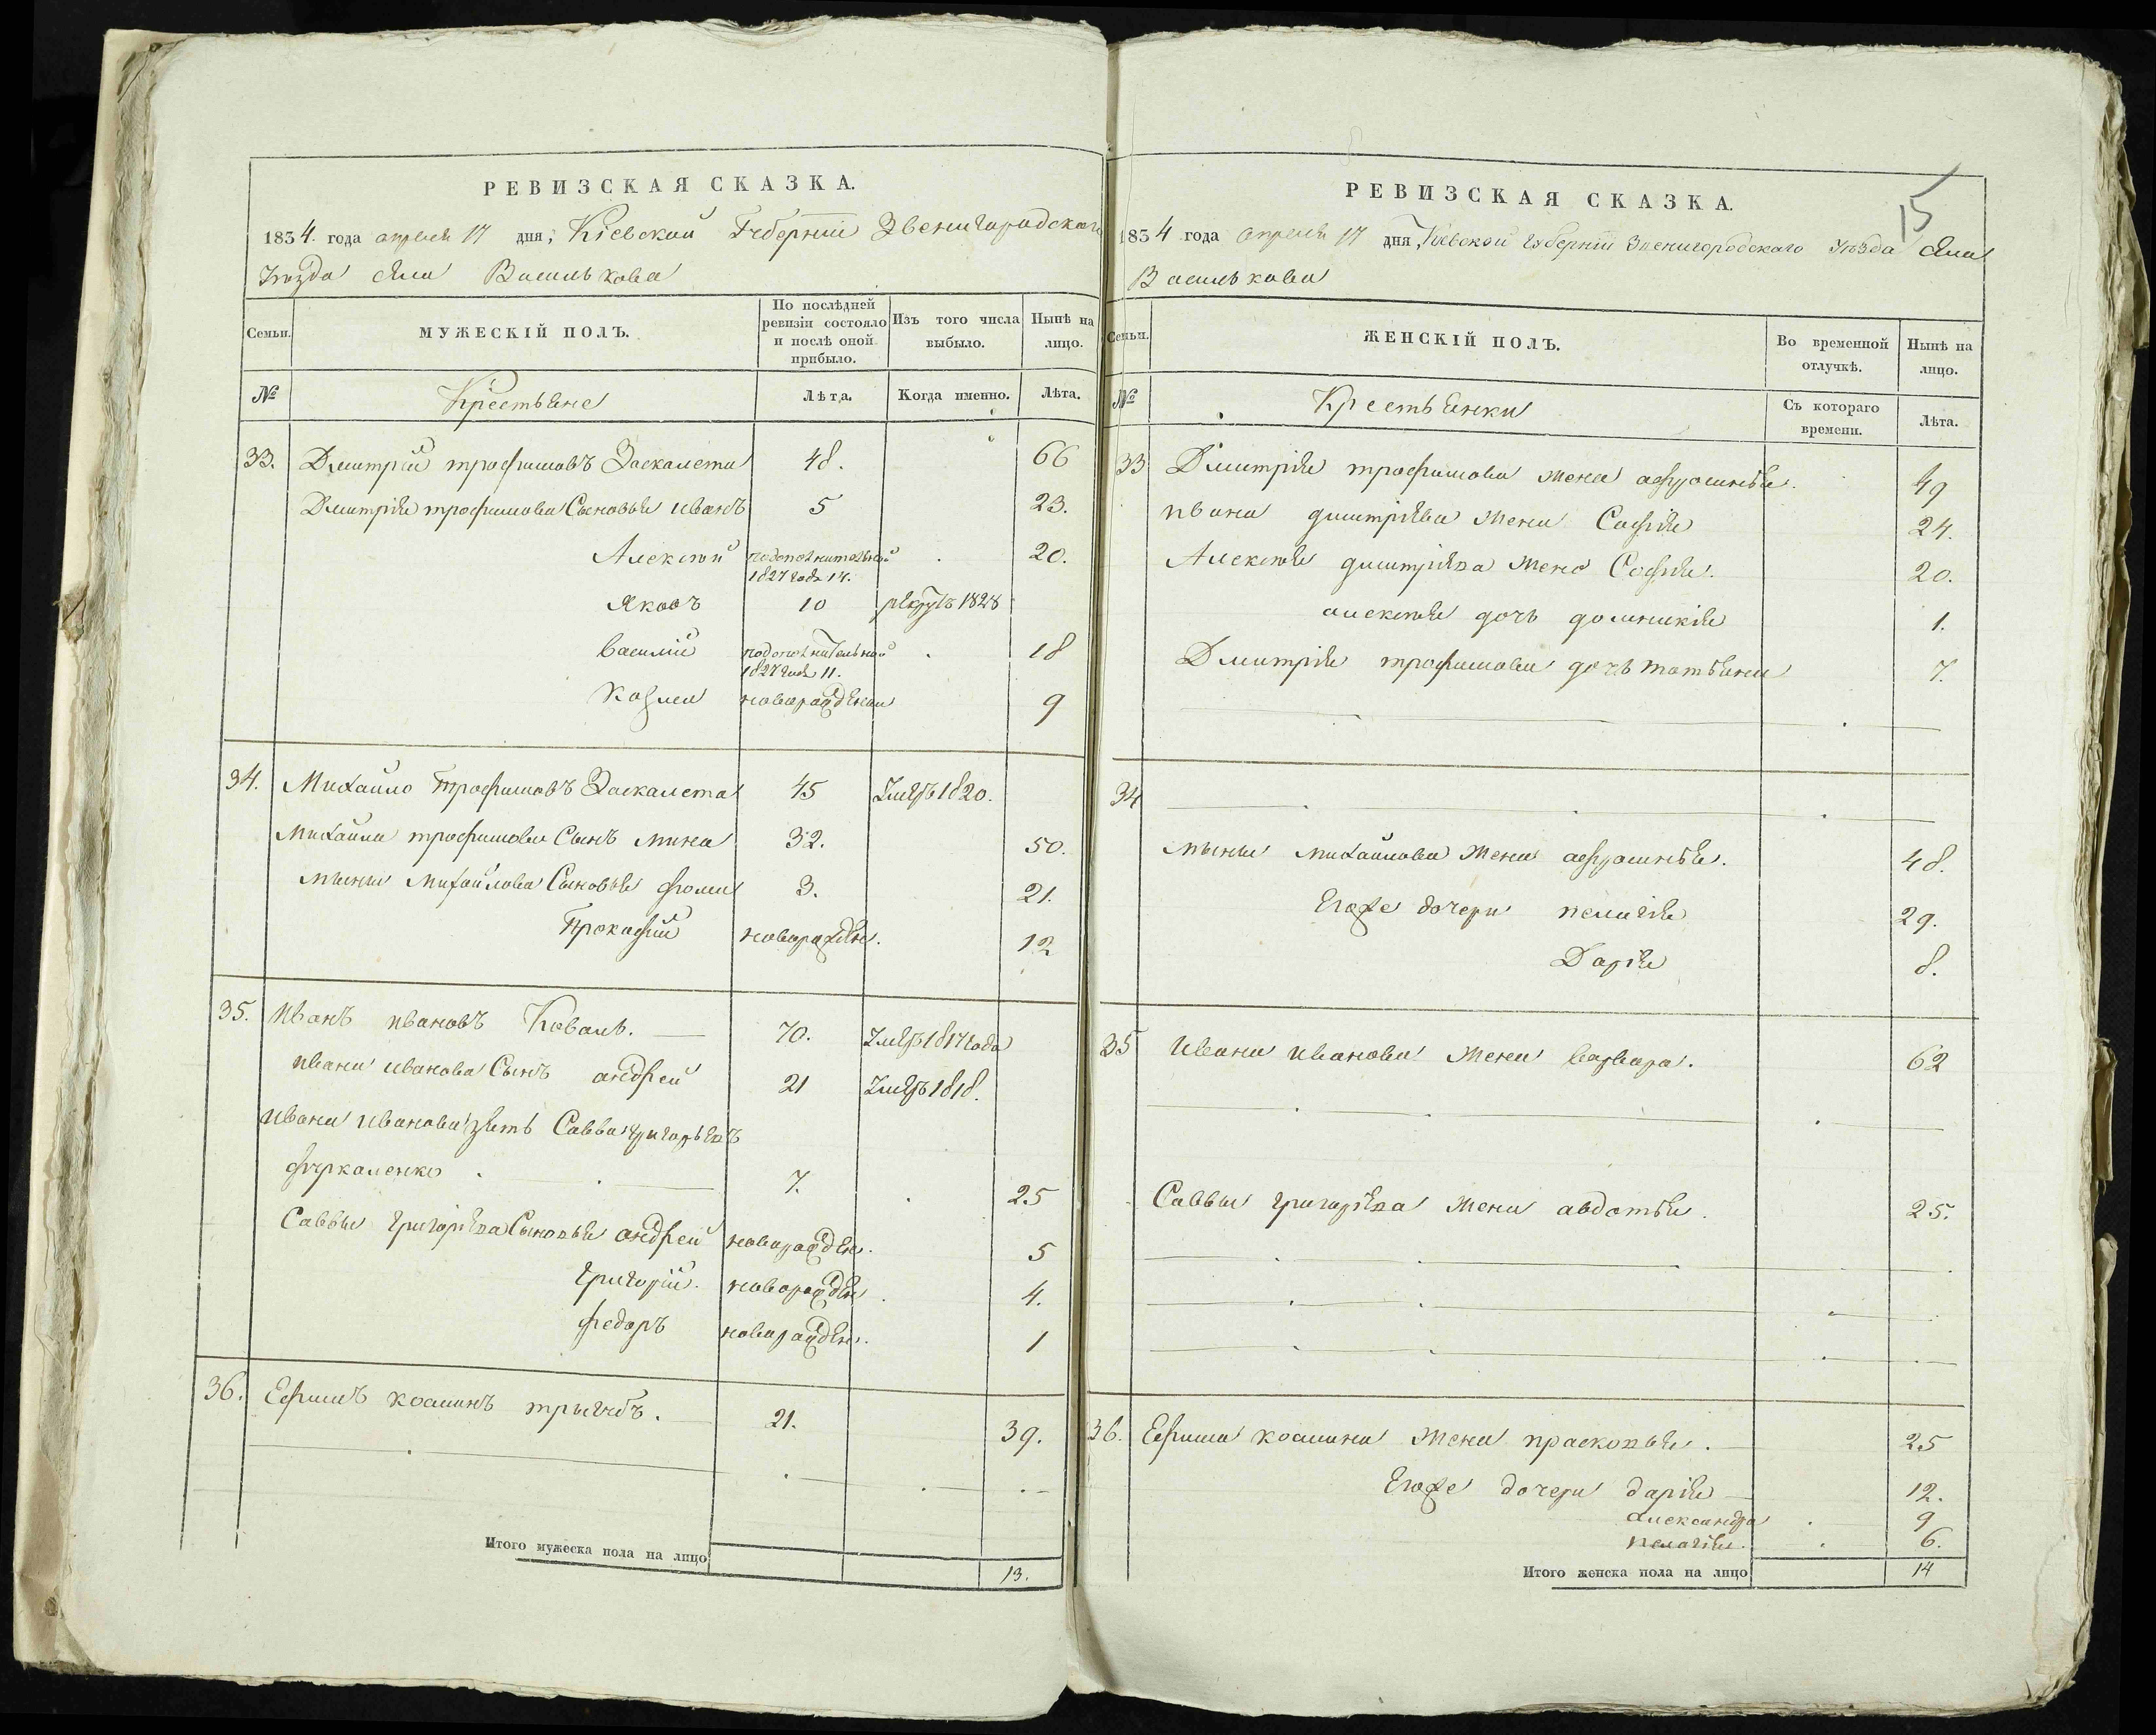 РЕВИЗСКАЯ СКАЗКА.
1834. года апреля 17 дня, Кіевской Губерніи Звенигородскаго
Уезда села Василькова
Семьи.
МУЖЕСКІЙ ПОЛЪ.
По послѣдней ревизіи состояло и послѣ оной прибыло.
Изъ того числа выбыло.
Нынѣ на лицо.
№
Крестьяне
Лѣта.
Когда именно.
Лѣта.
33. Дмитрій трофимовъ Заскалета 48. 66
Дмитрія трофимова Сыновья иванъ 5 23.
Алексѣй подополнительной 1827 года 14. 20.
Яковъ 10 рекрутъ 1828
Василій подополнительной 1827 года 11. 18
Козма новорожденои 9
34. Михайло Трофимовъ Заскалета 45 Умеръ 1820.
Михайла трофимова Сынъ мина 32. 50.
мины Михайлова Сыновья фома 3. 21.
Прокофій новорожден. 12
35. Иванъ ивановъ Коваль. 70. Умеръ 1817 года
ивана иванова Сынъ андрей 21 Умеръ 1818.
ивана иванова зять Савва григорьевъ
фуркаленко 7. 25
Саввы григоріева Сыновья андрей новорожден. 5
григорій. новорожден 4.
федоръ новорожден. 1
36. Ефимъ косминъ 21. 39.
Итого мужеска пола на лицо 13.
15
РЕВИЗСКАЯ СКАЗКА.
1834 года апреля 17 дня, Кіевской губерніи Звенигородскаго Уезда села
Василькова
Семьи.
ЖЕНСКІЙ ПОЛЪ.
Во временной отлучкѣ.
Нынѣ на лицо.
№
Крестьянки
Съ котораго времени.
Лѣта.
33 Дмитрія трофимова жена афросинья. 49
ивана дмитріева жена Софія 24.
Алексѣя дмитріева жена Софія. 20.
алексѣя дочь домникія 1.
Дмитрія трофимова дочь татьяна 7.
34
мины михайлова жена афросинья. 48.
Егоже дочери пелагія 29.
Дарія 8.
35 Ивана иванова жена варвара. 62
Саввы григоріева жена авдотья. 25.
36. Ефима космина жена прасковья. 25
Егоже дочери дарія 12.
александра 9
пелагія. 6.
Итого женска пола на лицо 14